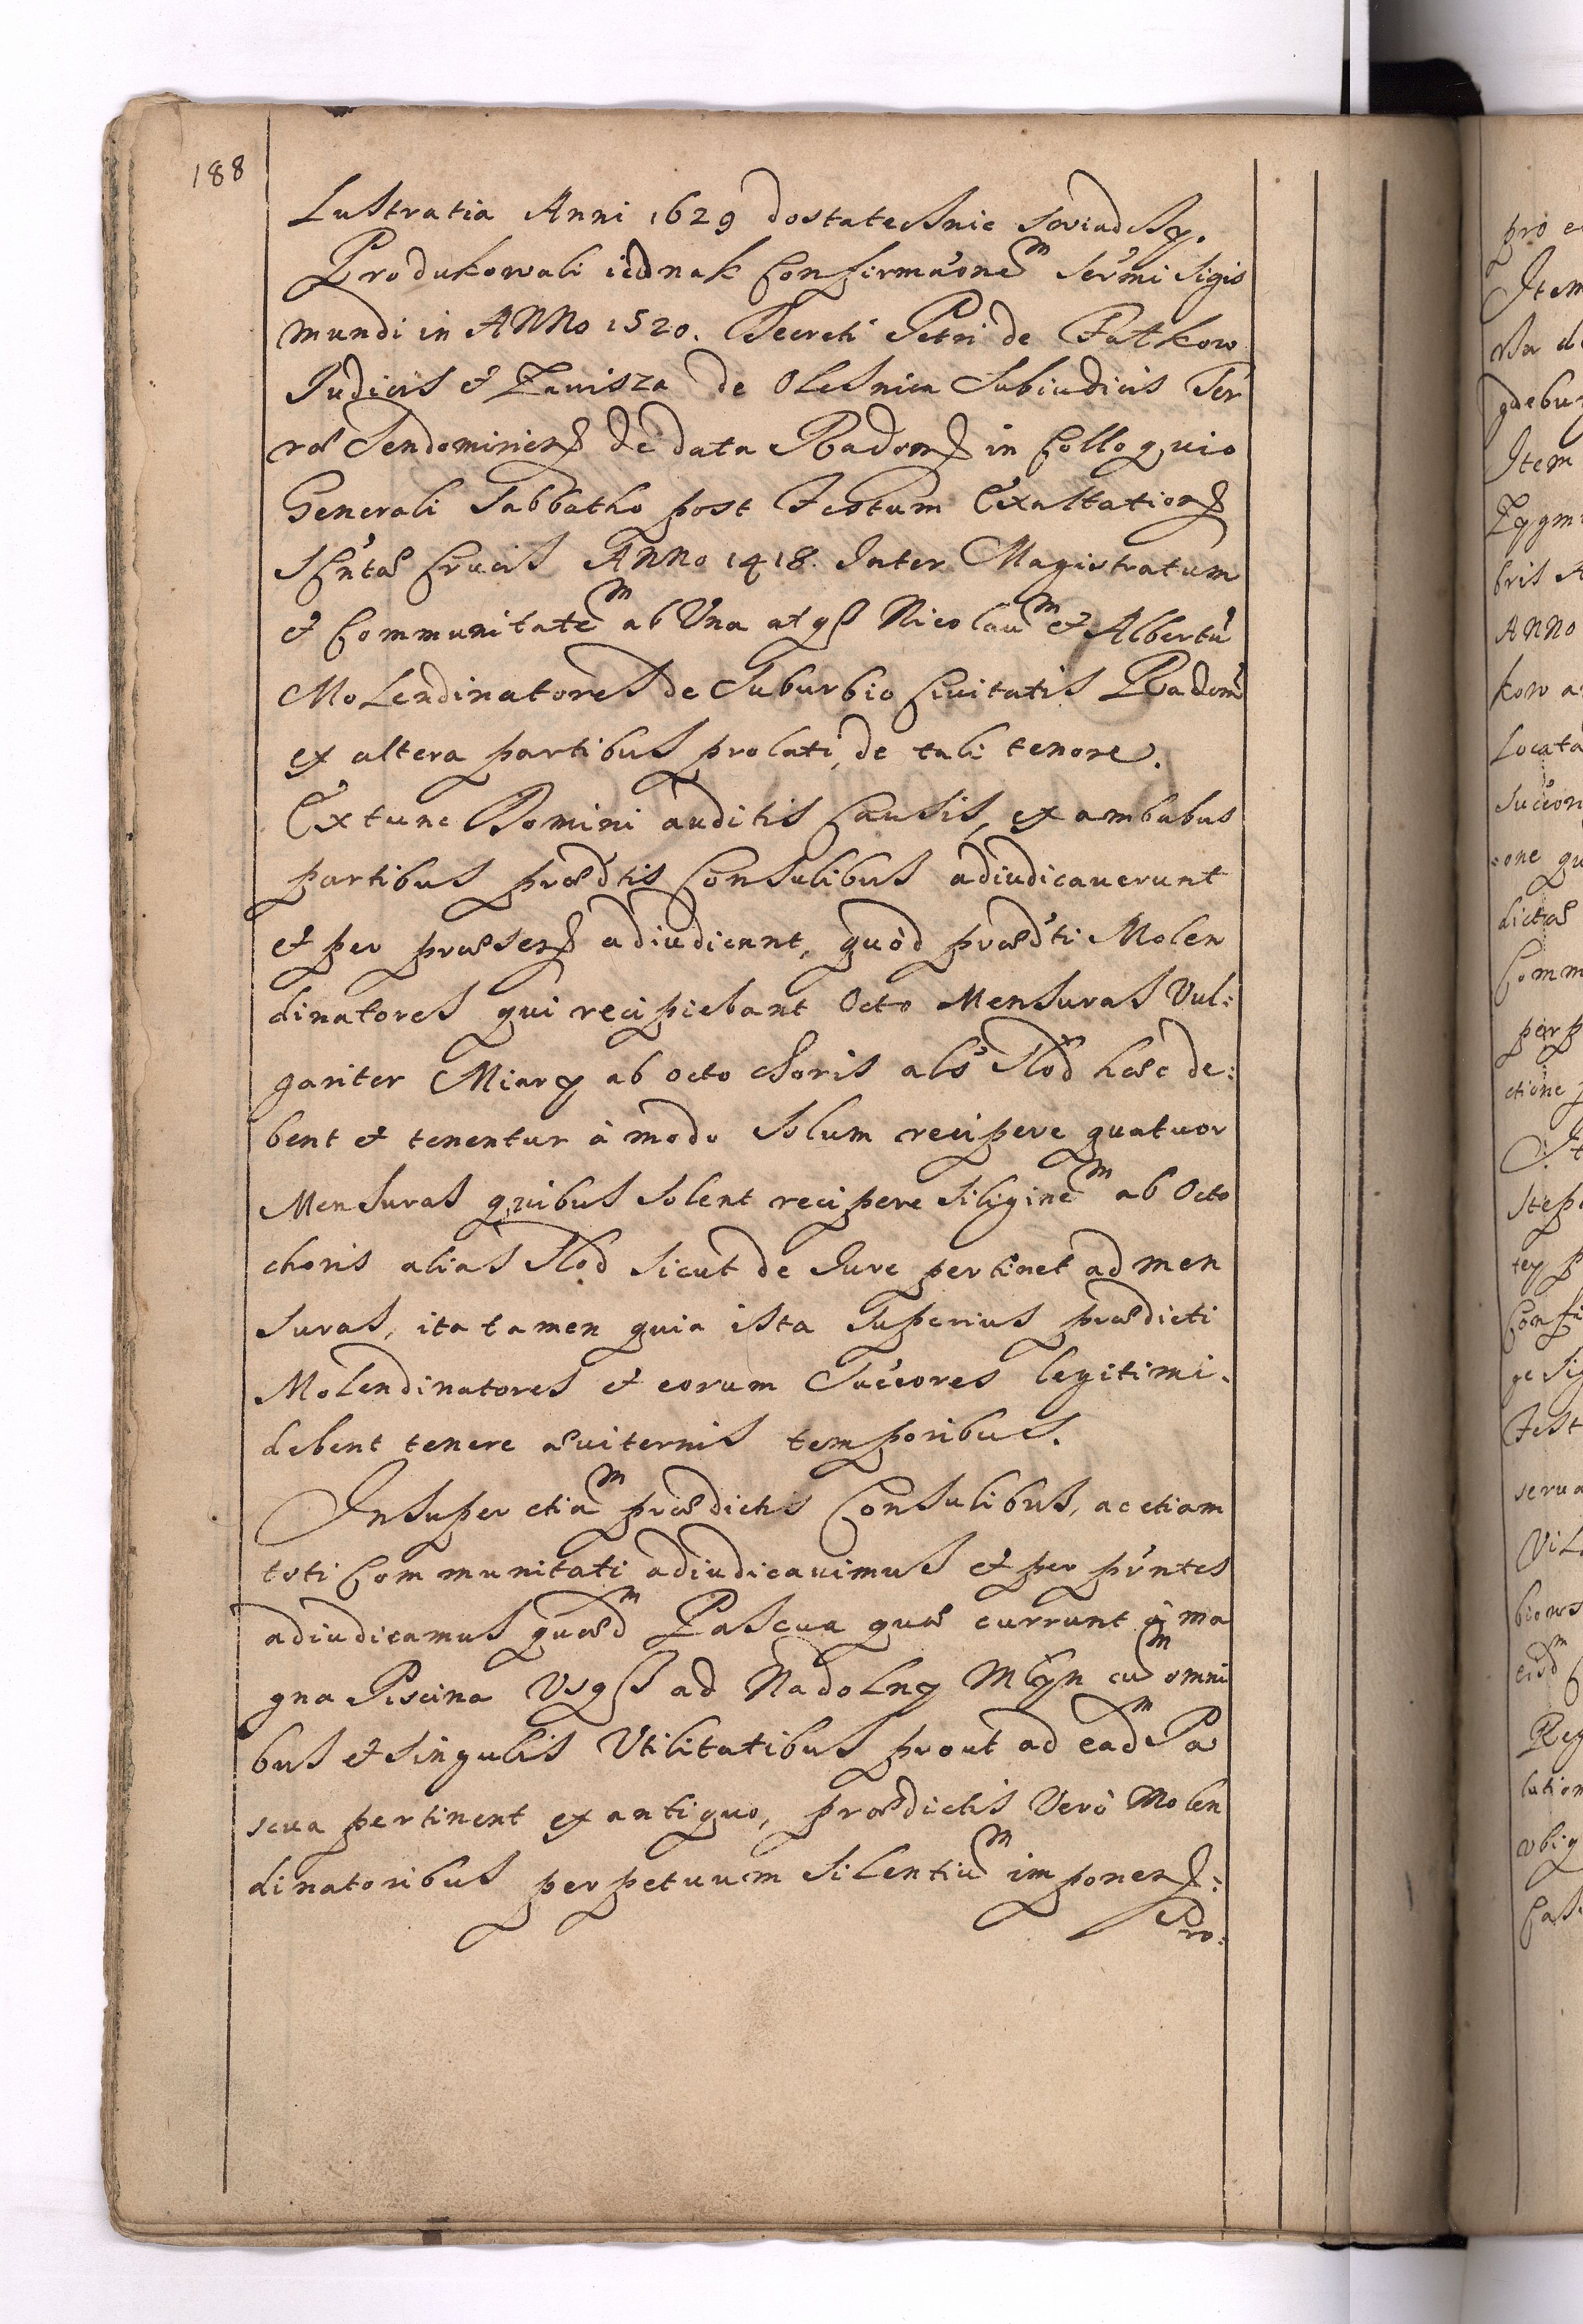 188
Lustratia Anni 1629 dostatecznie swiadczy.
Produkowali iednak Confirmaõnem Sermi Sigis
mundi in ANNo 1520. Decreti Petri de Falkow
Iudicis et Zawisza de Olesnica Subiudicis Ter
ræ Sendomiriens de data Radoms in Colloquio
Generali Sabbatho post Festum Exaltations
Sctæ Crucis ANNo 1418. Inter Magistratum
et Communitatem ab Vna atqs Nicolaum et Albertū
Molendinatores de Suburbio Civitatis Radom
ex altera partibus prolati, de tali tenore.
Extunc Domini auditis Causis, ex ambabus
partibus prædtis Consulibus adiudicaverunt
et per præsens adiudicant, quòd prædti Molen
dinatores qui recipiebant Octo Mensuras Vul:
gariter Miary ab octo choris als Slód hæc de:
bent et tenentur à modo solum recipere quatuor
Mensuras quibus solent recipere siliginem ab Octo
choris alias Slód sicut de Iure pertinet ad men
suras, ita tamen quia ista Superius prædicti
Molendinatores et eorum Succores legitimi.
debent tenere æviternis temporibus.
Insuper etiam prædictis Consulibus, ac etiam
toti Communitati adiudicavimus et per pñntes
adiudicamus quædm Pascua quæ currunt à ma
gna Piscina Vsqs ad Nadolny Mlyn cum omni
bus et singulis Vtilitatibus prout ad eadm Pa
scua pertinent ex antiquo, prædictis Verò Molen
dinatoribus perpetuum silentium imponens:
Pro: